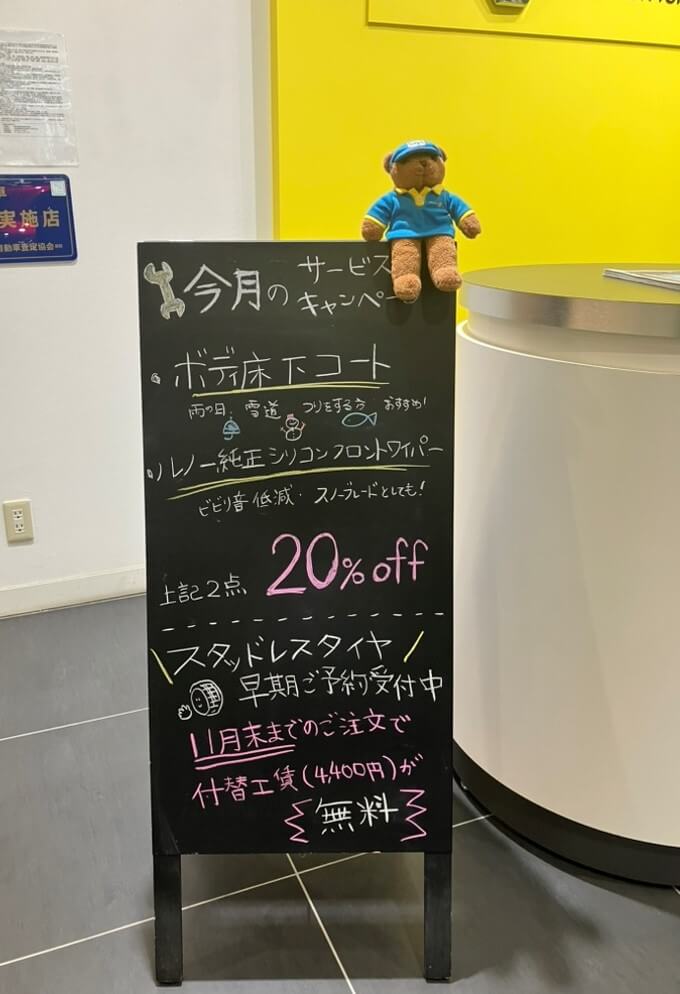 実施店
今月の
サービス
キャンペー
・ボディ床下コート
雨の日 雪道 つりをする方 おすすめ!
・ルノー純正シリコンフロントワイパー
ビビリ音低減・スノーブレードとしても!
上記2点 20%off
\スタッドレスタイヤ/
早期ご予約受付中
11月末までのご注文で
付替工賃(4,400円)が
無料